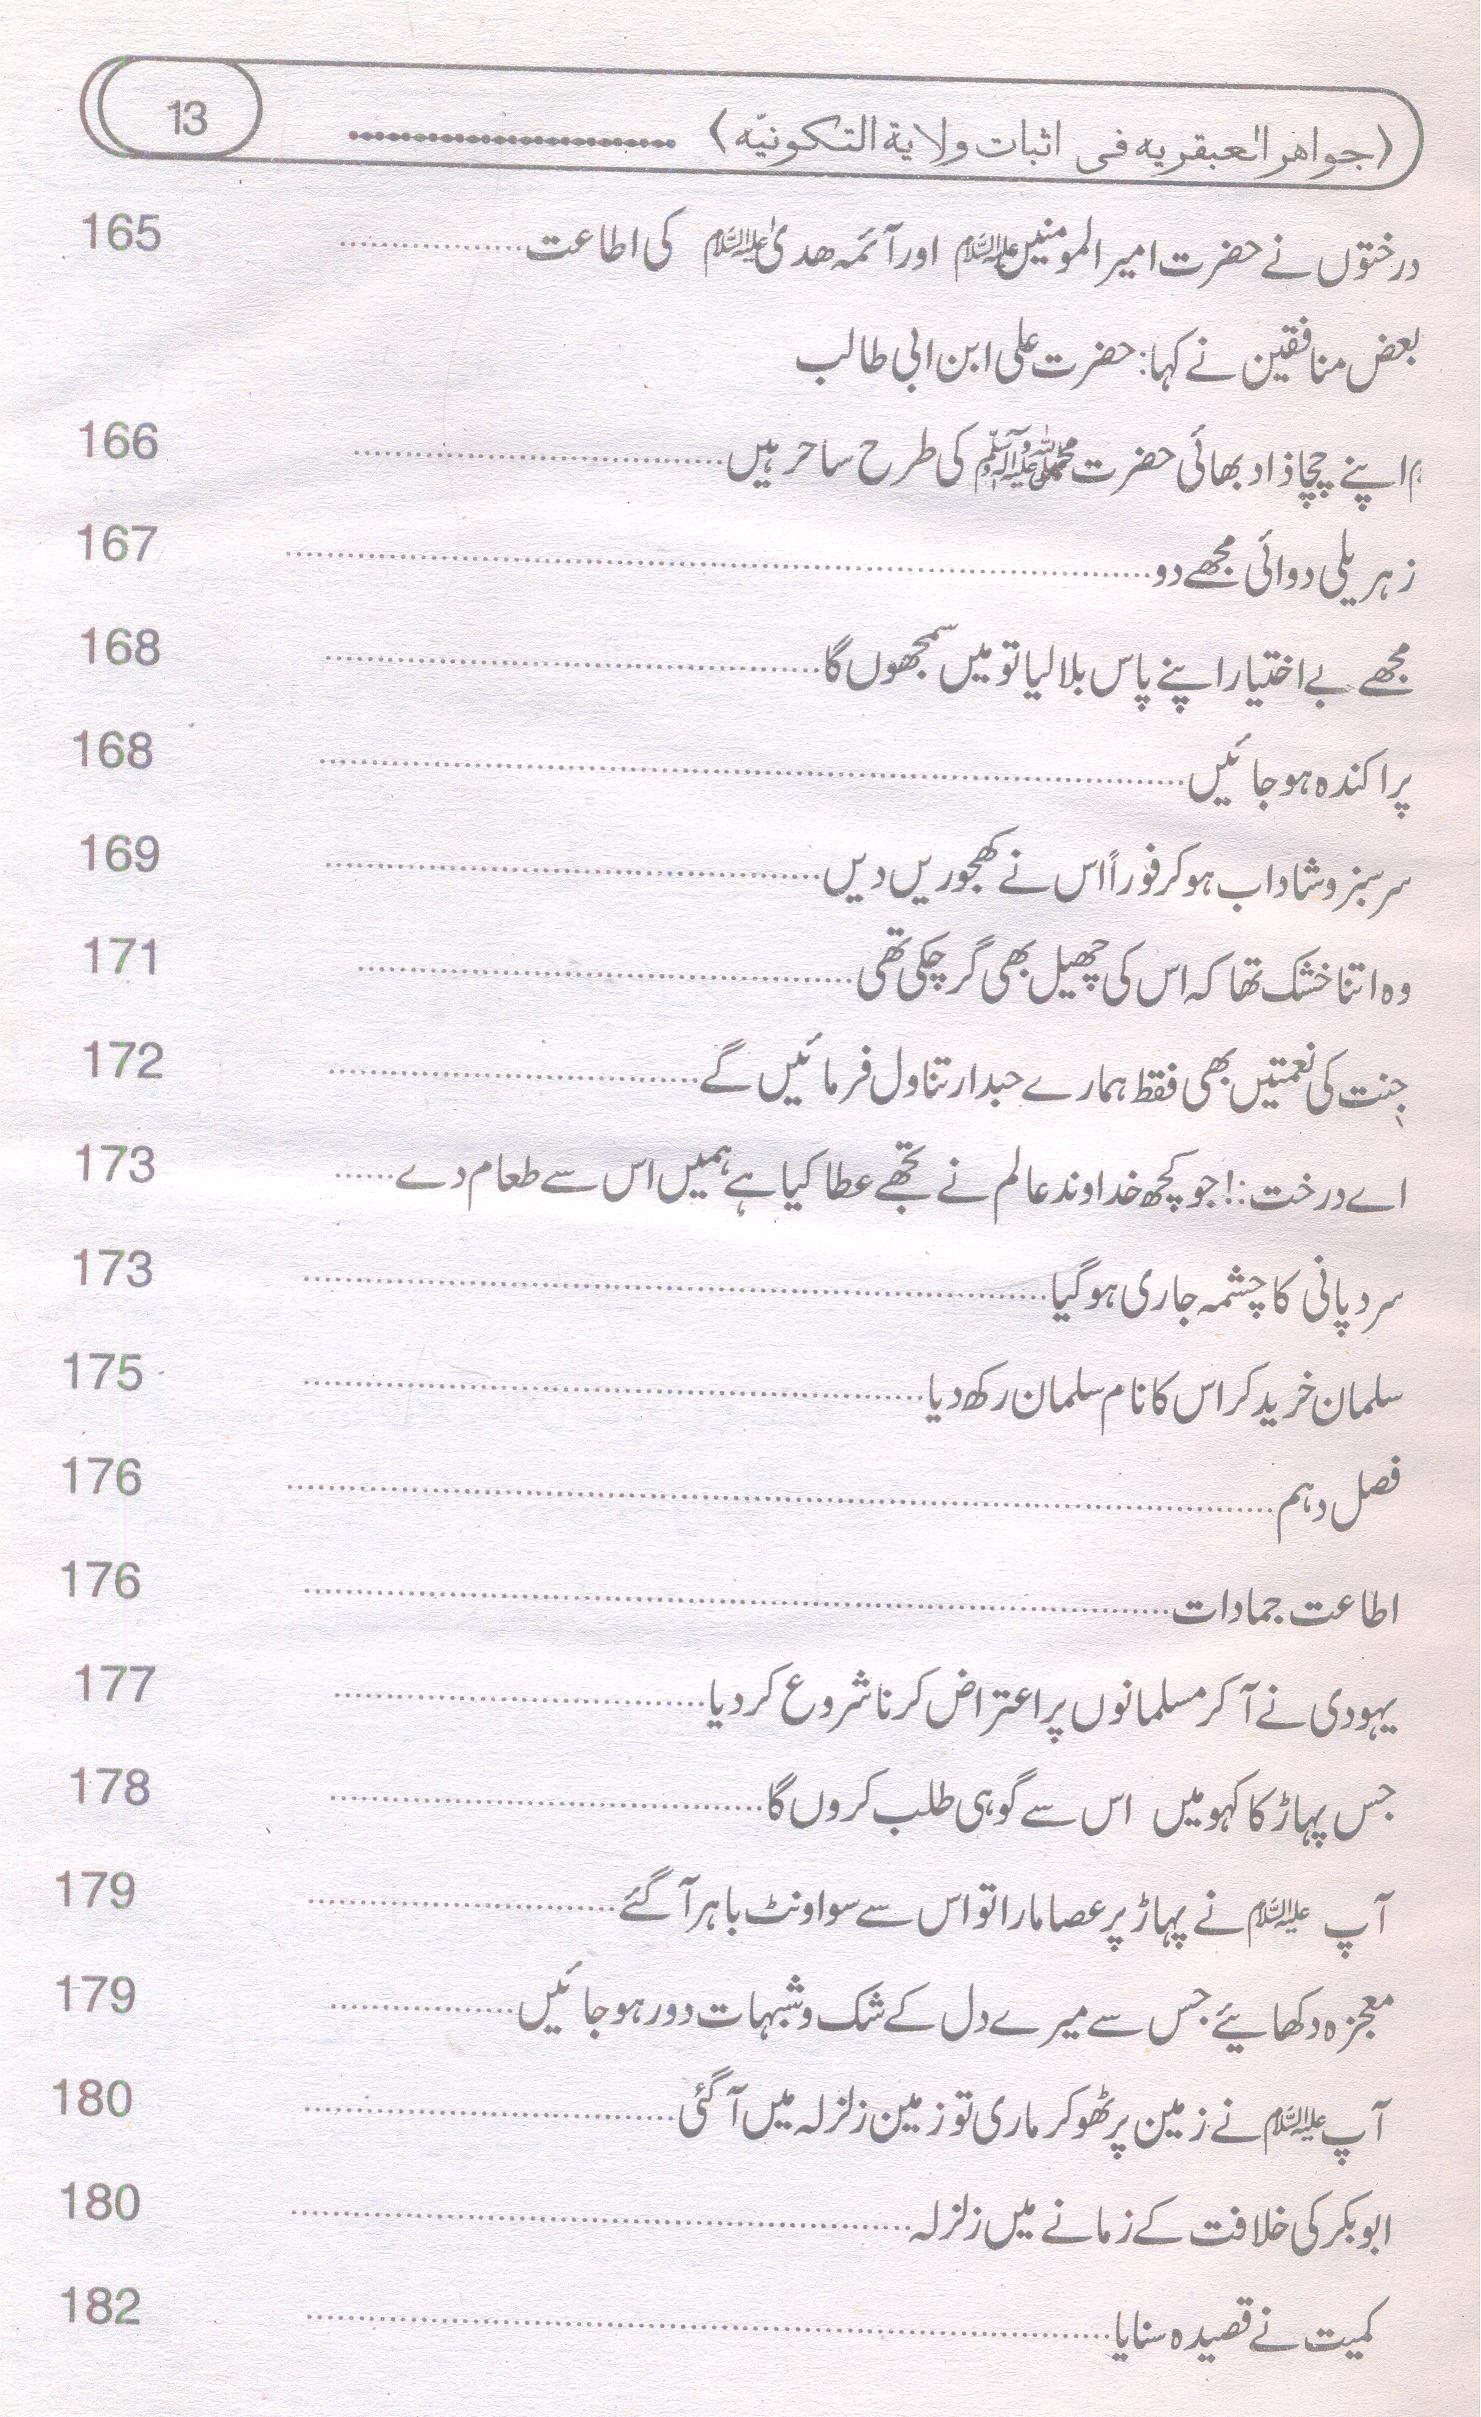 ﴿جواهر العبقریه فی اثبات ولایة التکونیّه﴾ .......................... 13
درختوں نے حضرت امیر المومنین علیہ السلام اور آئمہ ھدیٰ علیہ السلام کی اطاعت .......... 165
بعض منافقین نے کہا: حضرت علی ابن ابی طالب
اپنے چچا ذاد بھائی حضرت محمد صلی اللہ علیہ وآلہ وسلم کی طرح ساحر ہیں .......... 166
زہریلی دوائی مجھے دو .......... 167
مجھے بے اختیار اپنے پاس بلا لیا تو میں سمجھوں گا .......... 168
پراکندہ ہو جائیں .......... 168
سرسبز و شاداب ہو کر فوراً اس نے کھجوریں دیں .......... 169
وہ اتنا خشک تھا کہ اس کی چھیل بھی گر چکی تھی .......... 171
جنت کی نعمتیں بھی فقط ہمارے حبدار تناول فرمائیں گے .......... 172
اے درخت:! جو کچھ خداوند عالم نے تجھے عطا کیا ہے ہمیں اس سے طعام دے ...... 173
سرد پانی کا چشمہ جاری ہو گیا .......... 173
سلمان خرید کر اس کا نام سلمان رکھ دیا .......... 175
فصل دہم .......... 176
اطاعت جمادات .......... 176
یہودی نے آ کر مسلمانوں پر اعتراض کرنا شروع کر دیا .......... 177
جس پہاڑ کا کہو میں اس سے گوہی طلب کروں گا .......... 178
آپ علیہ السلام نے پہاڑ پر عصا مارا تو اس سے سو اونٹ باہر آ گئے .......... 179
معجزہ دکھایئے جس سے میرے دل کے شک و شبہات دور ہو جائیں .......... 179
آپ علیہ السلام نے زمین پر ٹھوکر ماری تو زمین زلزلہ میں آ گئی .......... 180
ابو بکر کی خلافت کے زمانے میں زلزلہ .......... 180
کمیت نے قصیدہ سنایا .......... 182